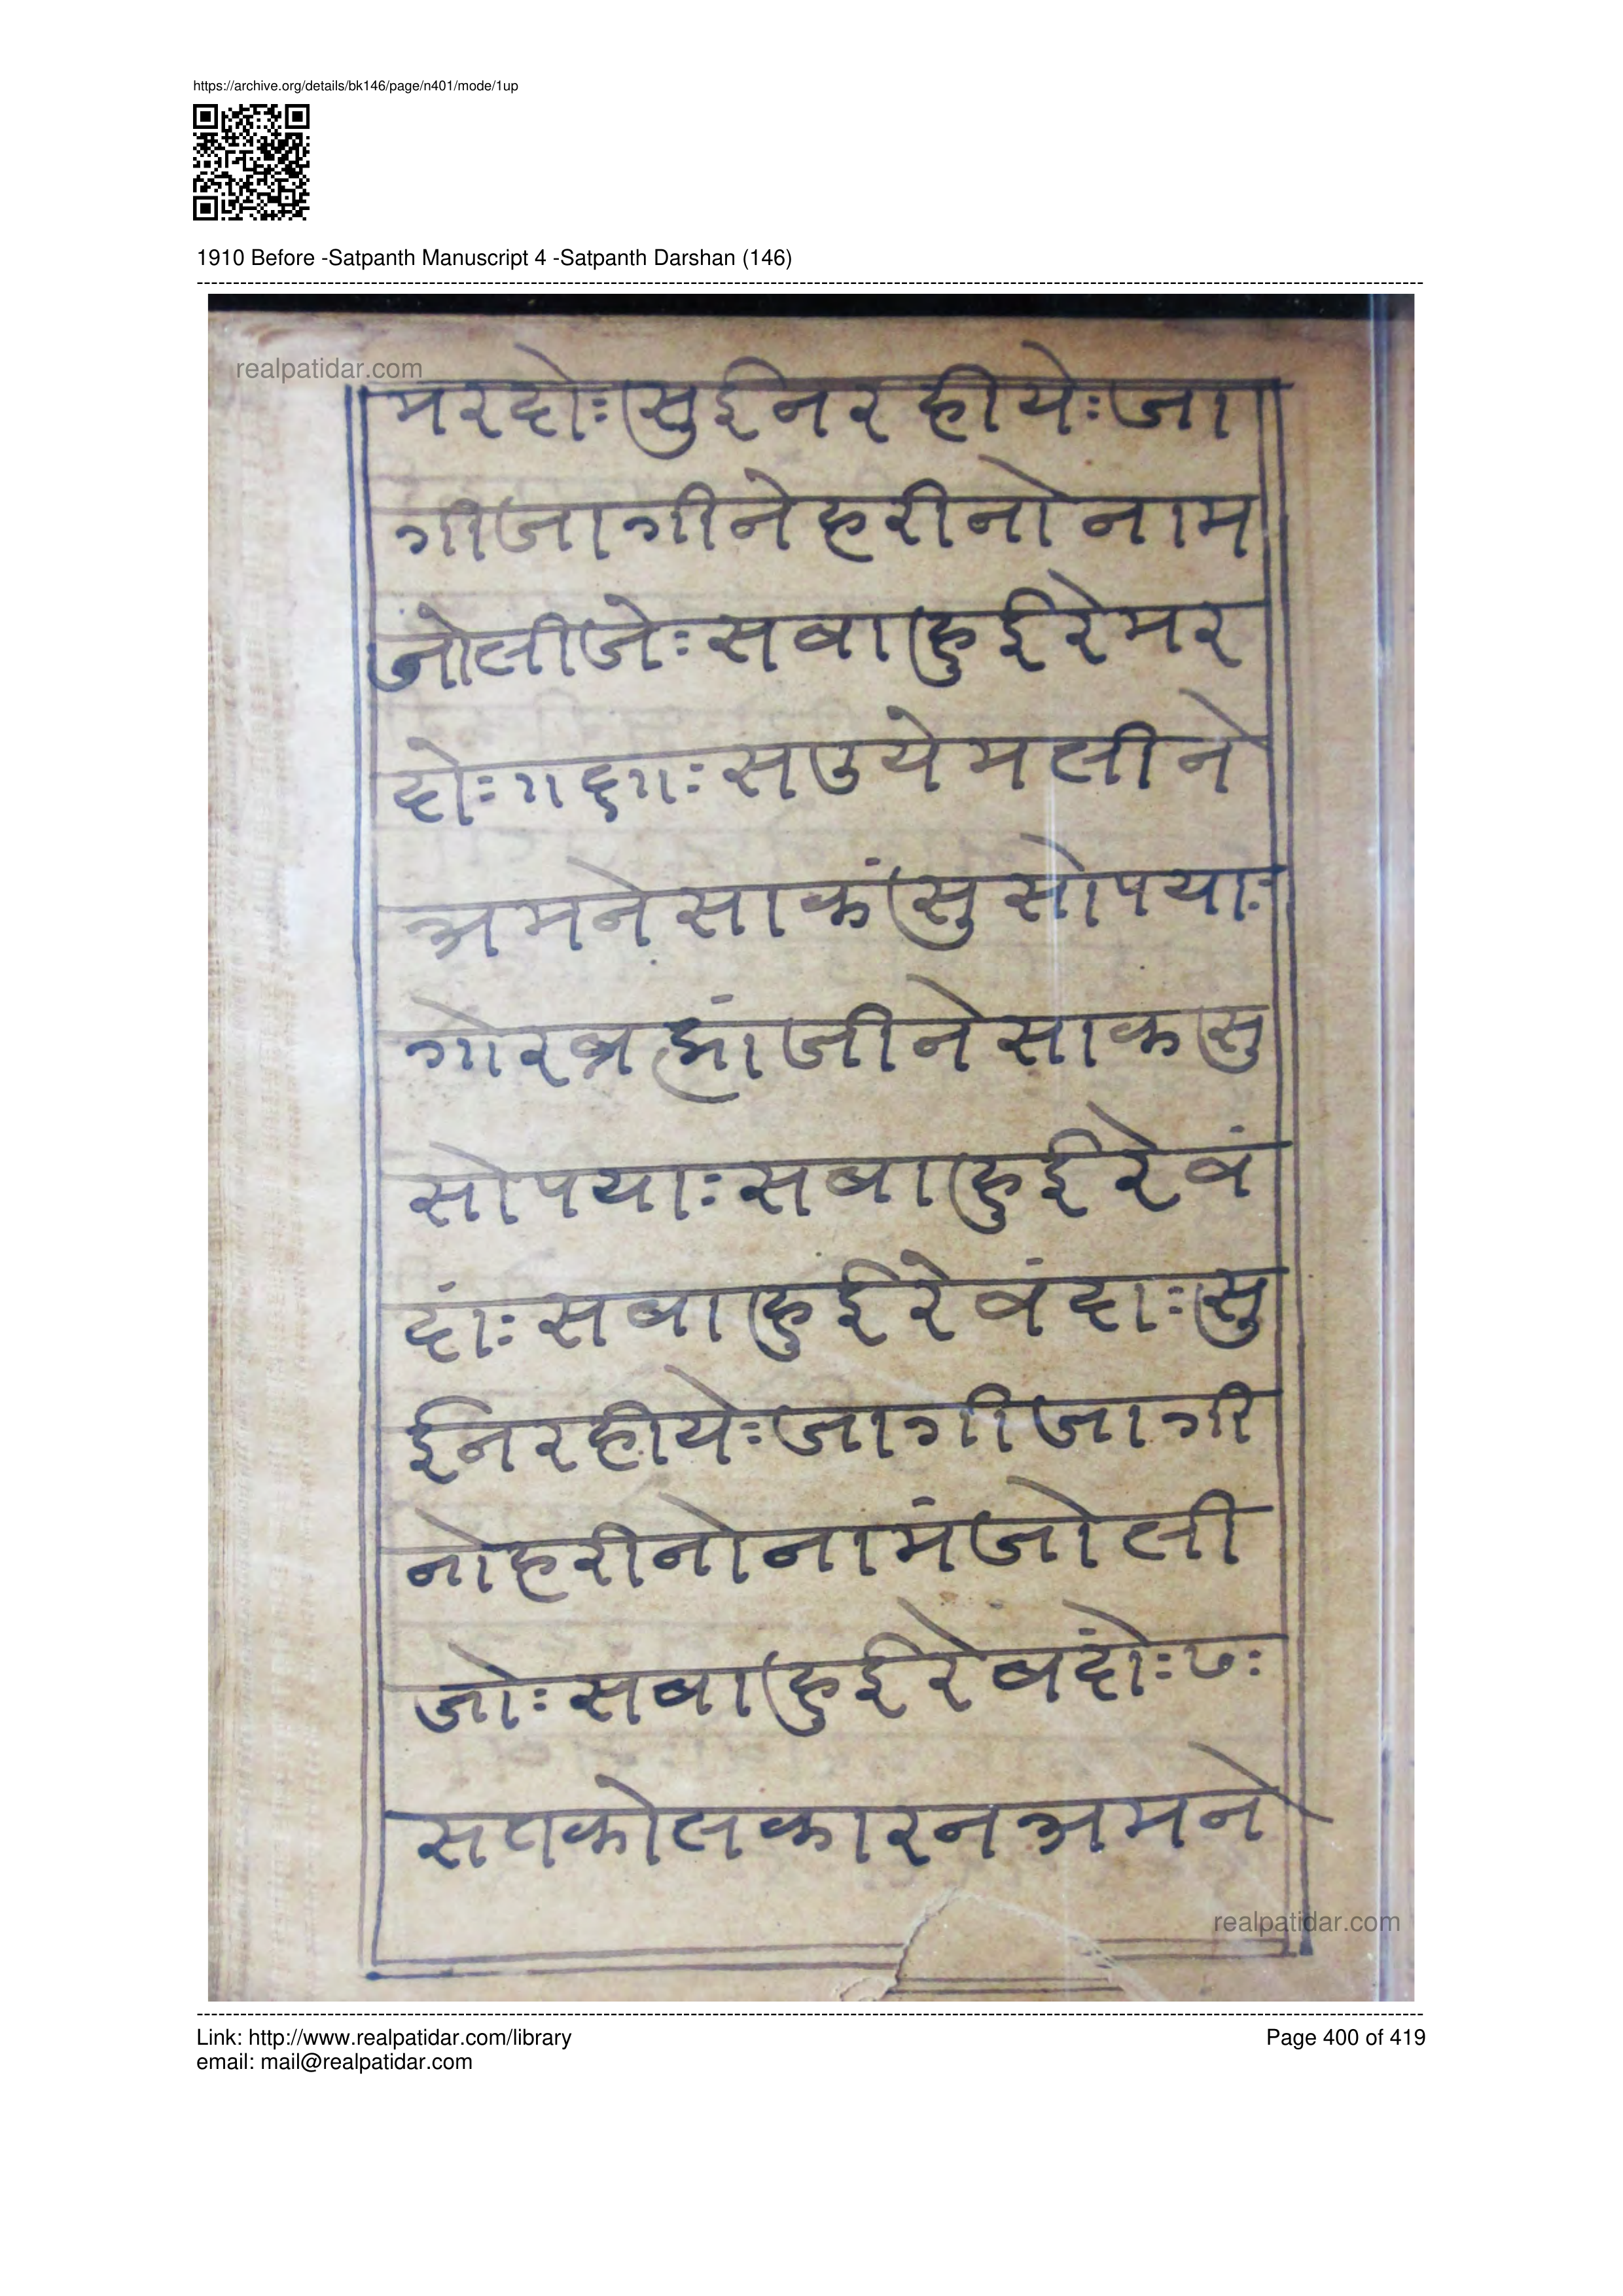 https://archive.org/details/bk146/page/n401/mode/1up
1910 Before -Satpanth Manuscript 4 -Satpanth Darshan (146)
realpatidar.com
मरदोः सुईनरहीयेः जा
गीजागीनेहरीनोनाम
जोलीजेः सबाहुईरेमर
दोः ॥६॥ः सउयेमलीने
अमनेसाकंसुसोपयाः
गोरब्रह्मांजीनेसाकसु
सोपयाः सबाहुईरेवं
दांः सबाहुईरेवंदाः सु
ईनरहीयेः जागीजागी
नोहरीनोनामंजोली
जोः सबाहुईरेबदोंः ७ः
सतकोलकारनअमने
realpatidar.com
Link: http://www.realpatidar.com/library
Page 400 of 419
email: mail@realpatidar.com